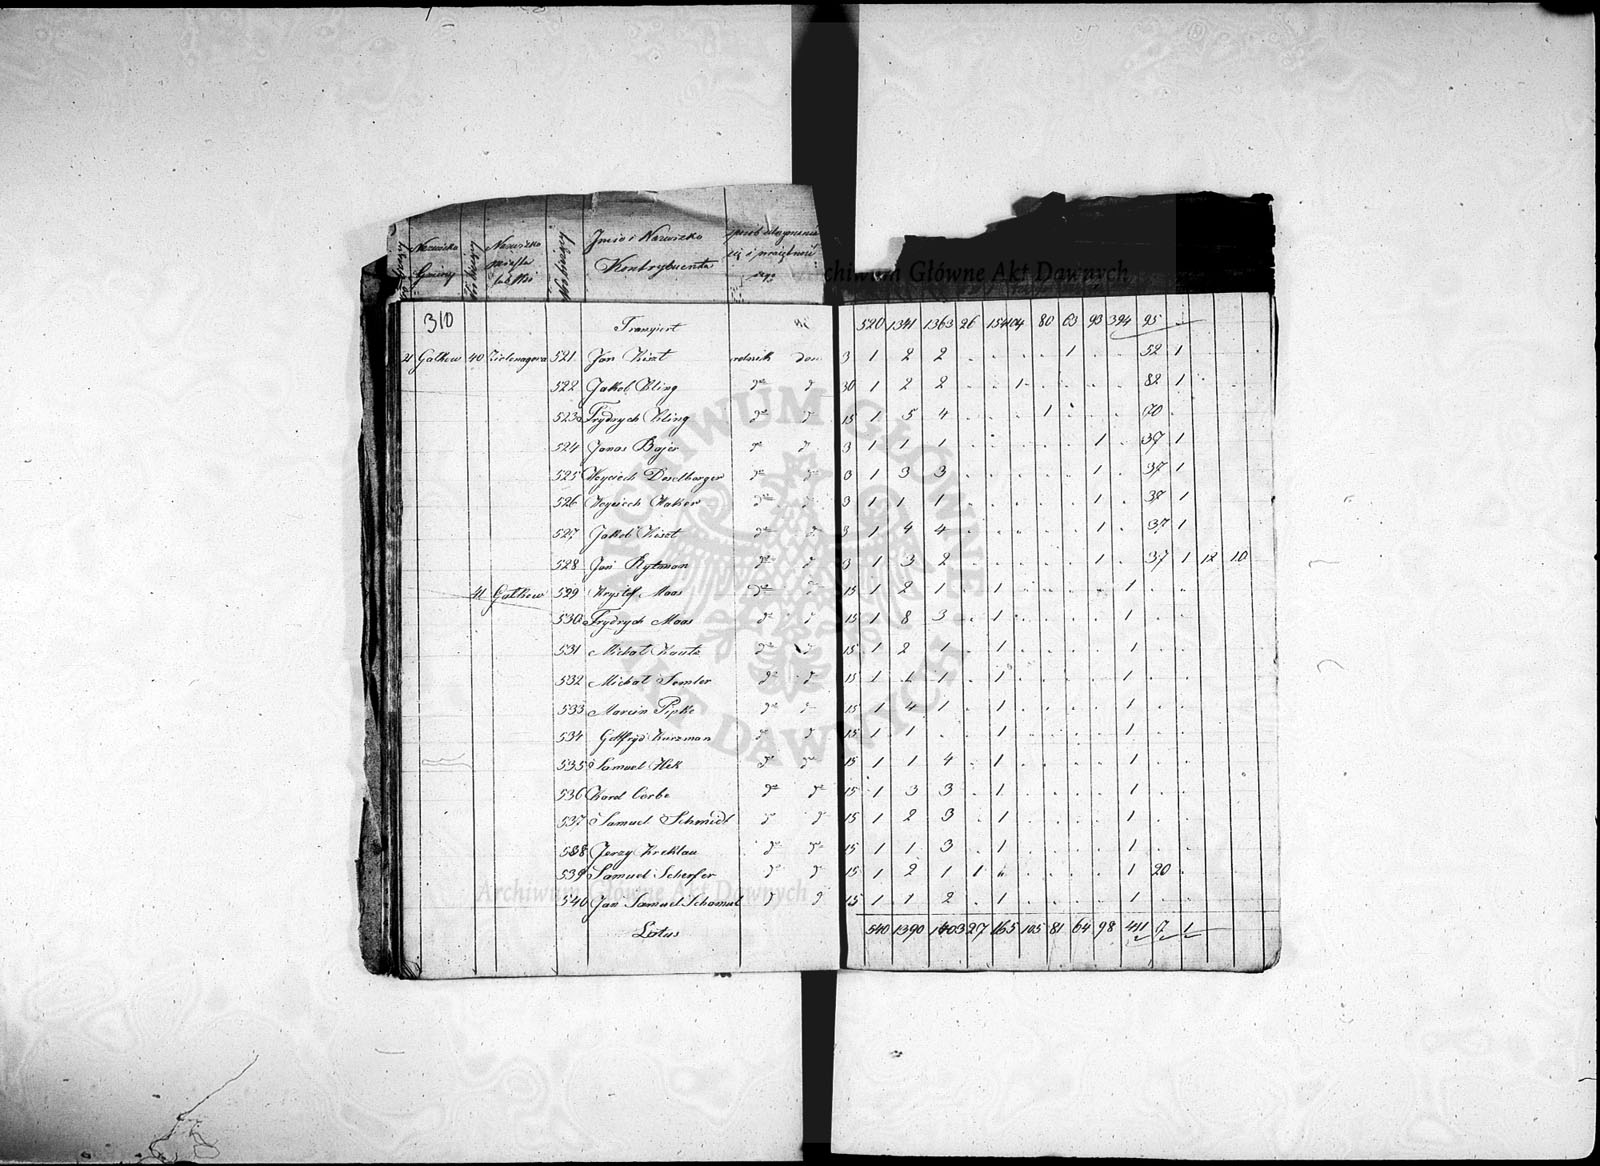 Nazwisko Gminy
Imie i Nazwisko Kontrybuenta
310
Transport 520 1341 1363 26 154 104 80 63 93 394 95
21 Gałkow 40 Zielonagora 521 Jan Kiszt rolnik dom 3 1 2 2 . . . . 1 . . 52 1
522 Jakob Kling do do 30 1 2 2 . . 1 . . . . 82 1
523 Frydrych Kling do do 15 1 5 4 . . . 1 . . . 70
524 Jonas Bajer do do 3 1 1 1 . . . . . 1 . 37 1
525 Woyciech Deselberger do do 3 1 3 3 . . . . . 1 . 37 1
526 Woyciech Haker do do 3 1 1 1 . . . . . 1 . 37 1
527 Jakob Kiszt do do 3 1 4 4 . . . . . 1 . 37 1
528 Jan Rytman do do 3 1 3 2 . . . . . 1 . 37 1 12 10
41 Gałkow 529 Krystof Maas do do 15 1 2 1 . 1 . . . . 1 . .
530 Frydrych Maas do do 15 1 8 3 . 1 . . . . 1 . .
531 Michał Kautz do do 15 1 2 1 . 1 . . . . 1 . .
532 Michał Semler do do 15 1 1 1 . 1 . . . . 1 . .
533 Marcin Pipke do do 15 1 4 1 . 1 . . . . 1 . .
534 Gotfryd Kurzman do do 15 1 1 . . 1 . . . . 1 . .
535 Samuel Hek do do 15 1 1 4 . 1 . . . . 1 . .
536 Karol Corbe do do 15 1 3 3 . 1 . . . . 1 . .
537 Samuel Schmidt do do 15 1 2 3 . 1 . . . . 1 . .
538 Jerzy Kreklau do do 15 1 1 3 . 1 . . . . 1 . .
539 Samuel Scherfer do do 15 1 2 1 1 . . . . 1 20 .
540 Jan Samuel do do 15 1 1 2 . 1 . . . . 1 . .
Lotus 540 1390 1403 27 165 105 81 64 98 411 7 1
Archiwum Główne Akt Dawnych
ARCHIWUM GŁÓWNE AKT DAWNYCH
Archiwum Główne Akt Dawnych